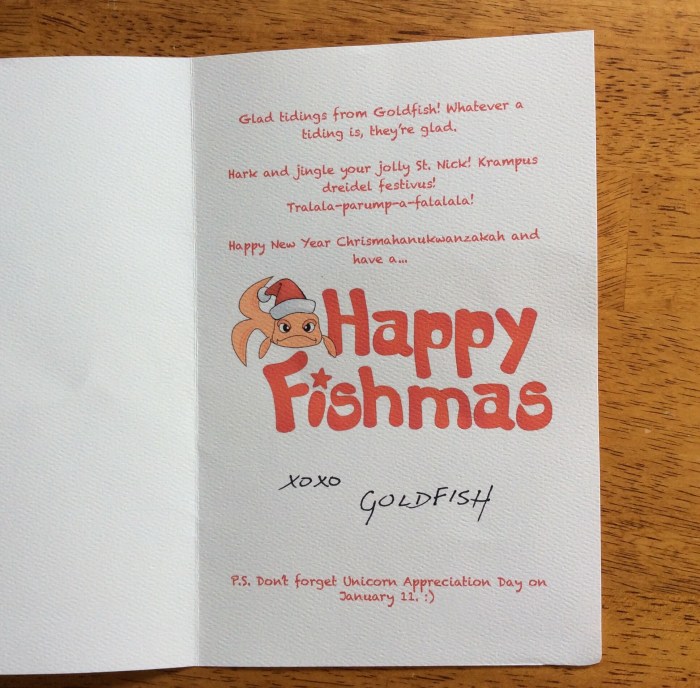 Glad tidings from Goldfish! Whatever a
tiding is, they're glad.
Hark and jingle your jolly St. Nick! Krampus
dreidel festivus!
Tralala-parump-a-falalala!
Happy New Year Chrismahanukwanzakah and
have a...
Happy
Fishmas
xoxo
GOLDFISH
P.S. Don't forget Unicorn Appreciation Day on
January 11. :)